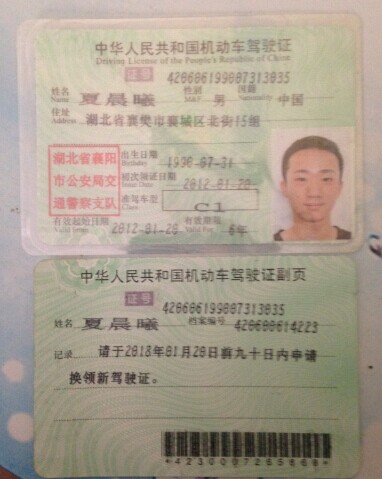 中华人民共和国机动车驾驶证
Driving License of the People's Republic of China
证号 420606199007313035
姓名 Name 夏晨曦 性别 M&F 男 国籍 Nationality 中国
住址 Address 湖北省襄樊市襄城区北街15组
湖北省襄阳
市公安局交
通警察支队
出生日期 Birthday 1990-07-31
初次领证日期 Issue Date 2012-01-20
准驾车型 Class C1
有效起始日期 Valid From 2012-01-20 有效期限 Valid For 6年
中华人民共和国机动车驾驶证副页
证号 420606199007313035
姓名 夏晨曦 档案编号 420600614223
记录 请于2018年01月20日前九十日内申请
换领新驾驶证。